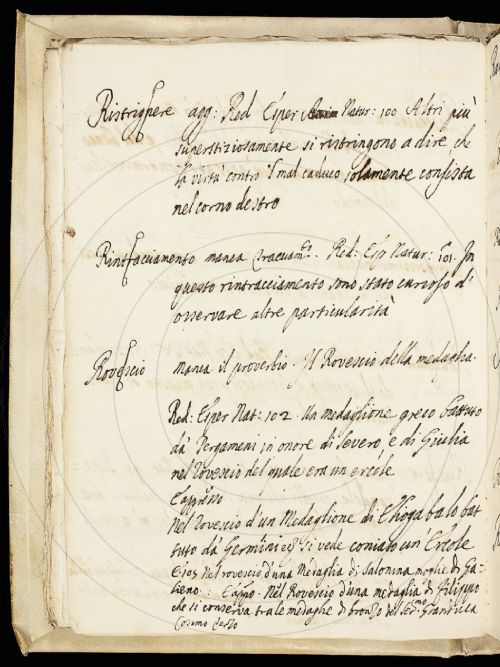 Ristrignere agg: Red Esper Natur: 100 Altri più
superstiziosamente si ristringono a dire che
la virtù contro 'l mal caduco solamente consista
nel corno destro
Rintracciamento manca. Red: Esp Natur: 101. In
questo rintracciamento sono stato curioso d'
osservare altre particularità
Rovescio manca il proverbio. Il Rovescio della medaglia.
Red: Esper Nat: 102. Un medaglione greco battuto
da' Pergameni in onore di Severo, e di Giulia
nel rovescio del quale era un ercole
E appresso
Nel rovescio d'un Medaglione di Eliogabalo bat
tuto da' Germini si vede coniato un Ercole
E 103 Nel rovescio d'una Medaglia di Salonina moglie di Ga-
lieno: E appo. Nel Rovescio d'una medaglia di Filippo
che si conserva tra le medaglie di bronzo del Ser.mo Granduca
Cosimo terzo